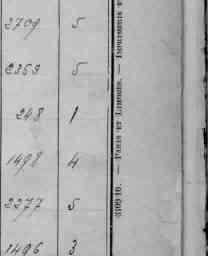 2709 5
2869 5
248 1
1498 4
2277 5
1496 3
— PARIS ET LIMOGES. — IMPRIMERIE ET